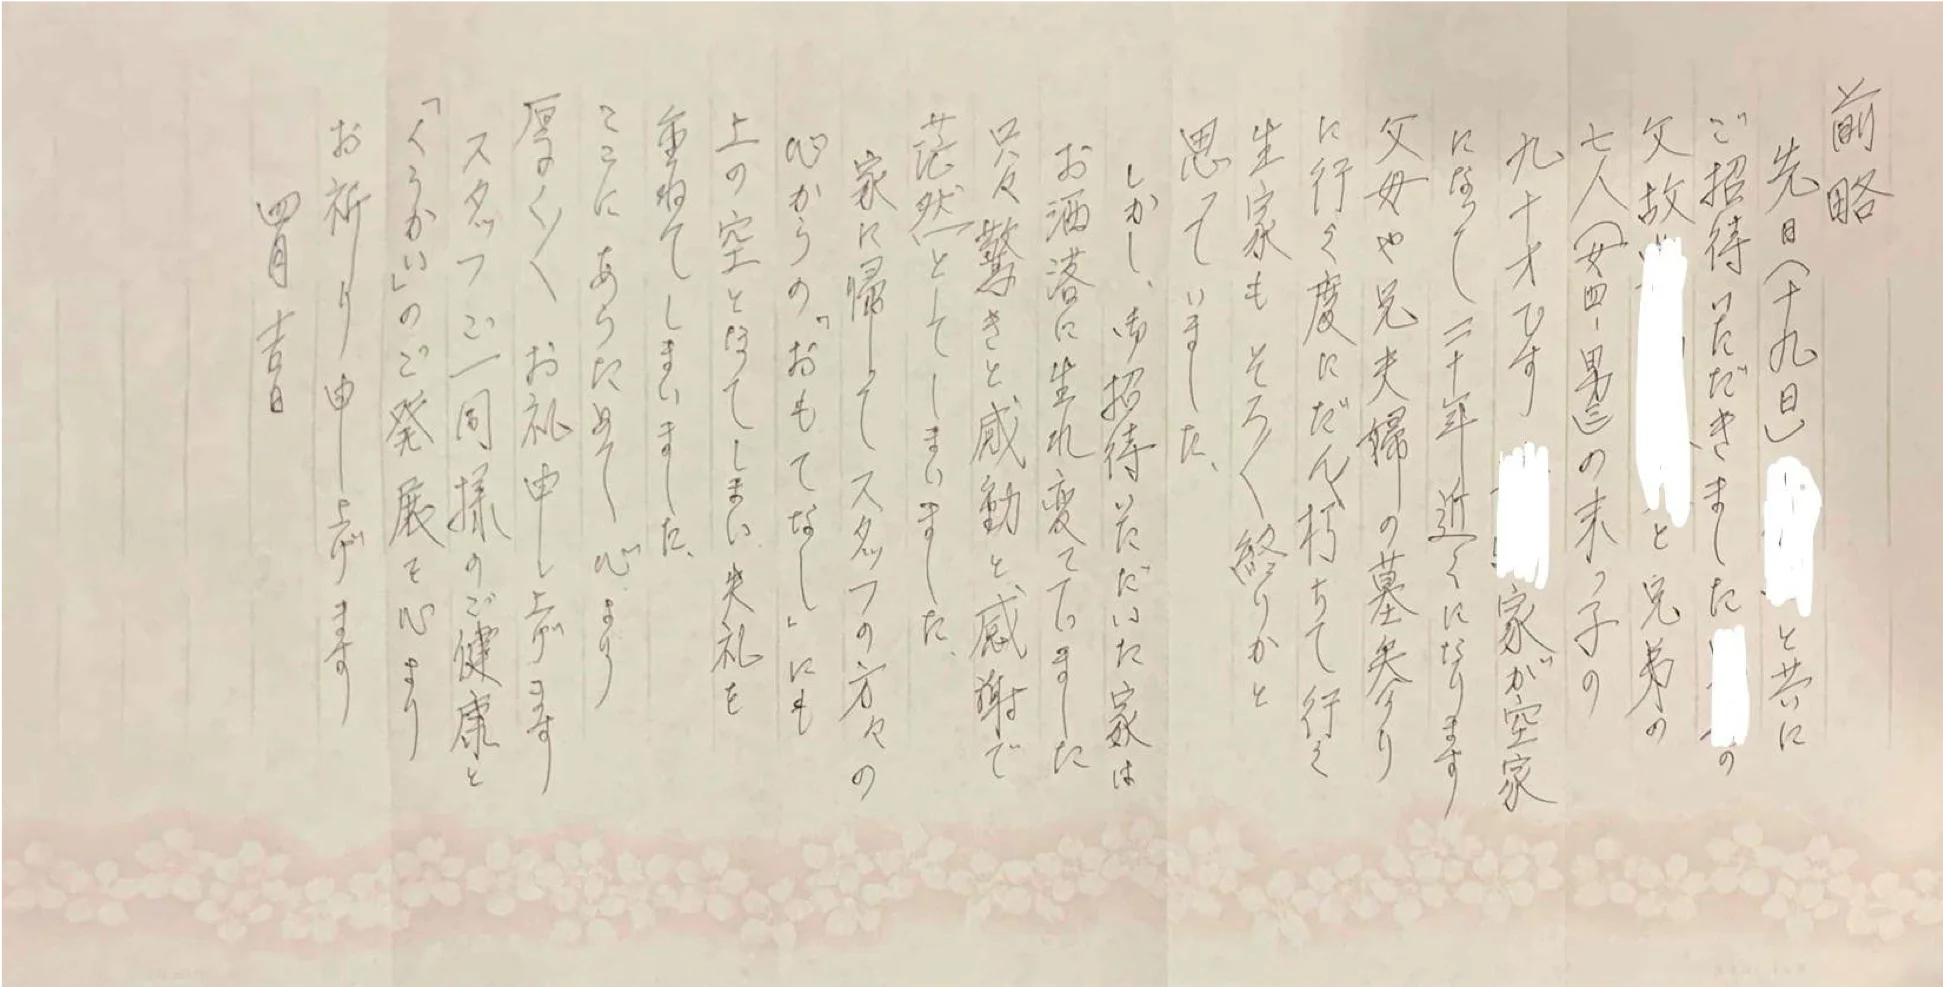 前略
先日(十九日)と共に
ご招待いただきましたの
父故と兄弟の
七人(女四、男三)の末っ子の
九十才です 家が空家
になって二十年近くになります
父母や兄夫婦の墓参り
に行く度にだんだん朽ちて行く
生家もそろ〳〵終りかと
思っていました、
しかし、御招待いただいた家は
お洒落に生れ変っていました
只々驚きと感動と、感謝で
茫然としてしまいました、
家に帰ってスタッフの方々の
心からの「おもてなし」にも
上の空となってしまい失礼を
重ねてしまいました、
ここにあらためて 心より
厚く〳〵 お礼申し上げます
スタッフご一同様のご健康と
「くうかい」のご発展を心より
お祈り申し上げます
四月吉日